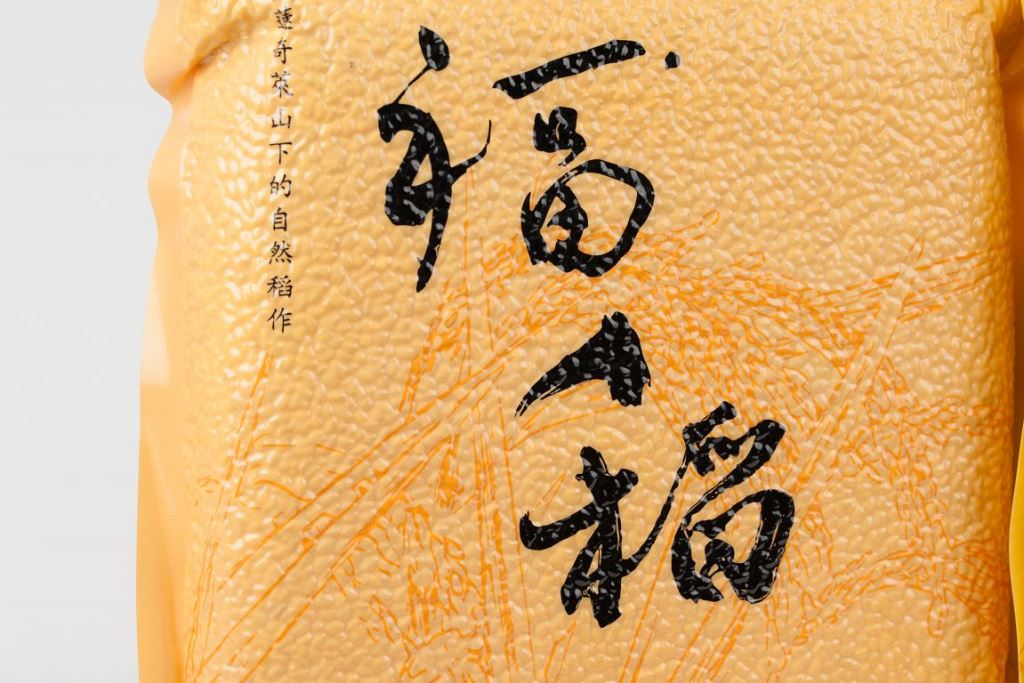 福人稻
蓮奇萊山下的自然稻作